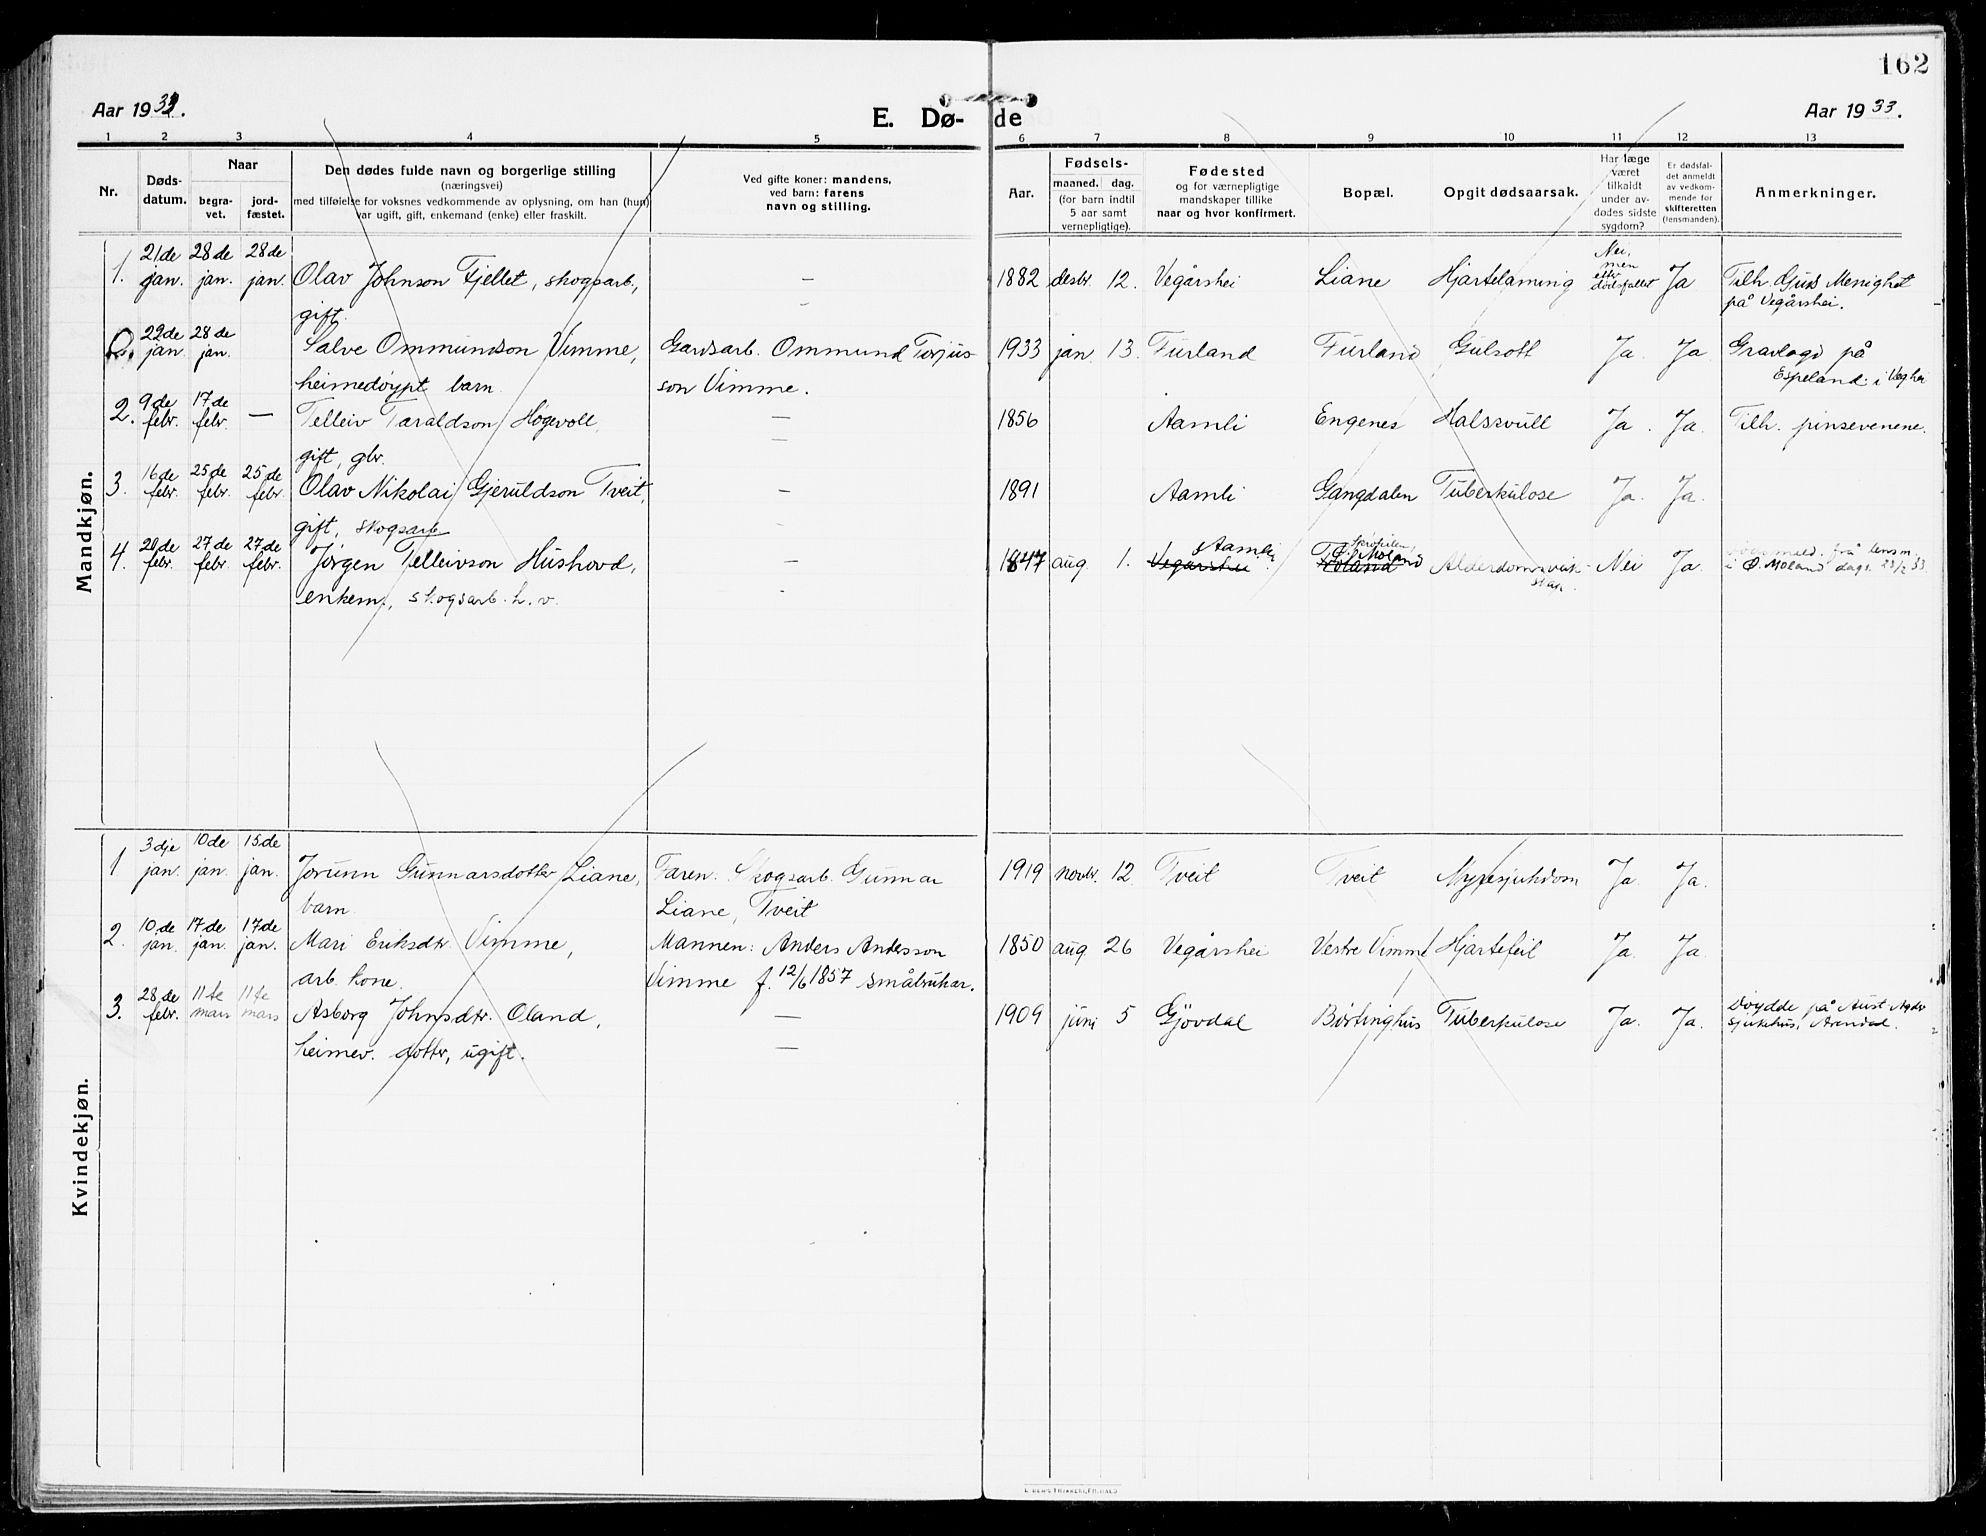 162
Aar 1933.
E. Dø-
de
Aar 1933.
1 2 3 4 5 6 7 8 9 10 11 12 13
Nr.
Døds-
datum.
Naar
begra-
vet.
jord-
fæstet.
Den dødes fulde navn og borgerlige stilling
(næringsvei)
med tilføielse for voksnes vedkommende av oplysning, om han (hun)
var ugift, gift, enkemand (enke) eller fraskilt.
Ved gifte koner: mandens,
ved barn: farens
navn og stilling.
Aar.
Fødsels-
maaned. dag.
(for barn indtil
5 aar samt
vernepligtige).
Fødested
og for værnepligtige
mandskaper tillike
naar og hvor konfirmert.
Bopæl.
Opgit dødsaarsak.
Har læge
været
tilkaldt
under av-
dødes sidste
sygdom?
Er dødsfal-
det anmeldt
av vedkom-
mende for
skifteretten
(lensmanden).
Anmerkninger.
Mandkjøn.
1. 21de jan. 28de jan. 28de jan. Olav Johnson Fjellet, skogsarb., — 1882 desbr. 12. Vegårshei Liane Hjartelaming Nei, men etter dødsfallet Ja Tilh. Guds Menighet
gift. på Vegårshei.
22de jan. 28de jan. Salve Ommundson Vimme, Gardsarb. Ommund Torjus- 1933 jan. 13. Furland Furland Gulsott Ja. Ja Gravlagd på
heimedøypt barn. son Vimme. Espeland i Veghei
2. 9de febr. 17de febr. — Telleiv Taraldson Høgevoll, — 1856 Aamli Engenes Halssvull Ja. Ja. Tilh. pinsevenene.
gift, gbr.
3. 16de febr. 25de febr. 25de febr. Olav Nikolai Gjeruldson Tveit, — 1891 Aamli Gangdalen Tuberkulose Ja. Ja.
gift, skogsarb.
4. 20de febr. 27de febr. 27de febr. Jørgen Telleivson Hushovd, — 1847 aug. 1. Vegårshei Aamli Froland Ø. Moland Alderdomsveik- skap. Nei Ja. frå lensm.
enkem., skogsarb. h. v. i Ø. Moland dags. 23/2 33
Kvindekjøn.
1 3dje jan. 10de jan. 15de jan. Jorunn Gunnarsdotter Liane, Faren: Skogsarb. Gunnar 1919 novbr. 12 Tveit Tveit Nyresjukdom Ja. Ja.
barn. Liane, Tveit
2. 10de jan. 17de jan. 17de jan. Mari Eriksdtr. Vimme, Mannen: Anders Andersson 1850 aug 26 Vegårshei Vestre Vimme Hjartefeil Ja. Ja.
arb. kone. Vimme f. 12/6 1857 småbrukar.
3. 28de febr. 11te mars 11te mars Asborg Johnsdtr. Oland, — 1909 juni 5 Gjøvdal Børtinghus Tuberkulose Ja. Ja. Døydde på Aust-Agder
heimev. dotter, ugift. — sjukehus, Arendal.